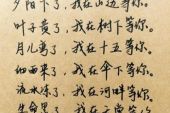 夕阳下了，我在山边等你。
叶子黄了，我在树下等你。
月儿弯了，我在十五等你。
细雨来了，我在伞下等你。
流水冻了，我在河畔等你。
生命累了，我在天堂等你。